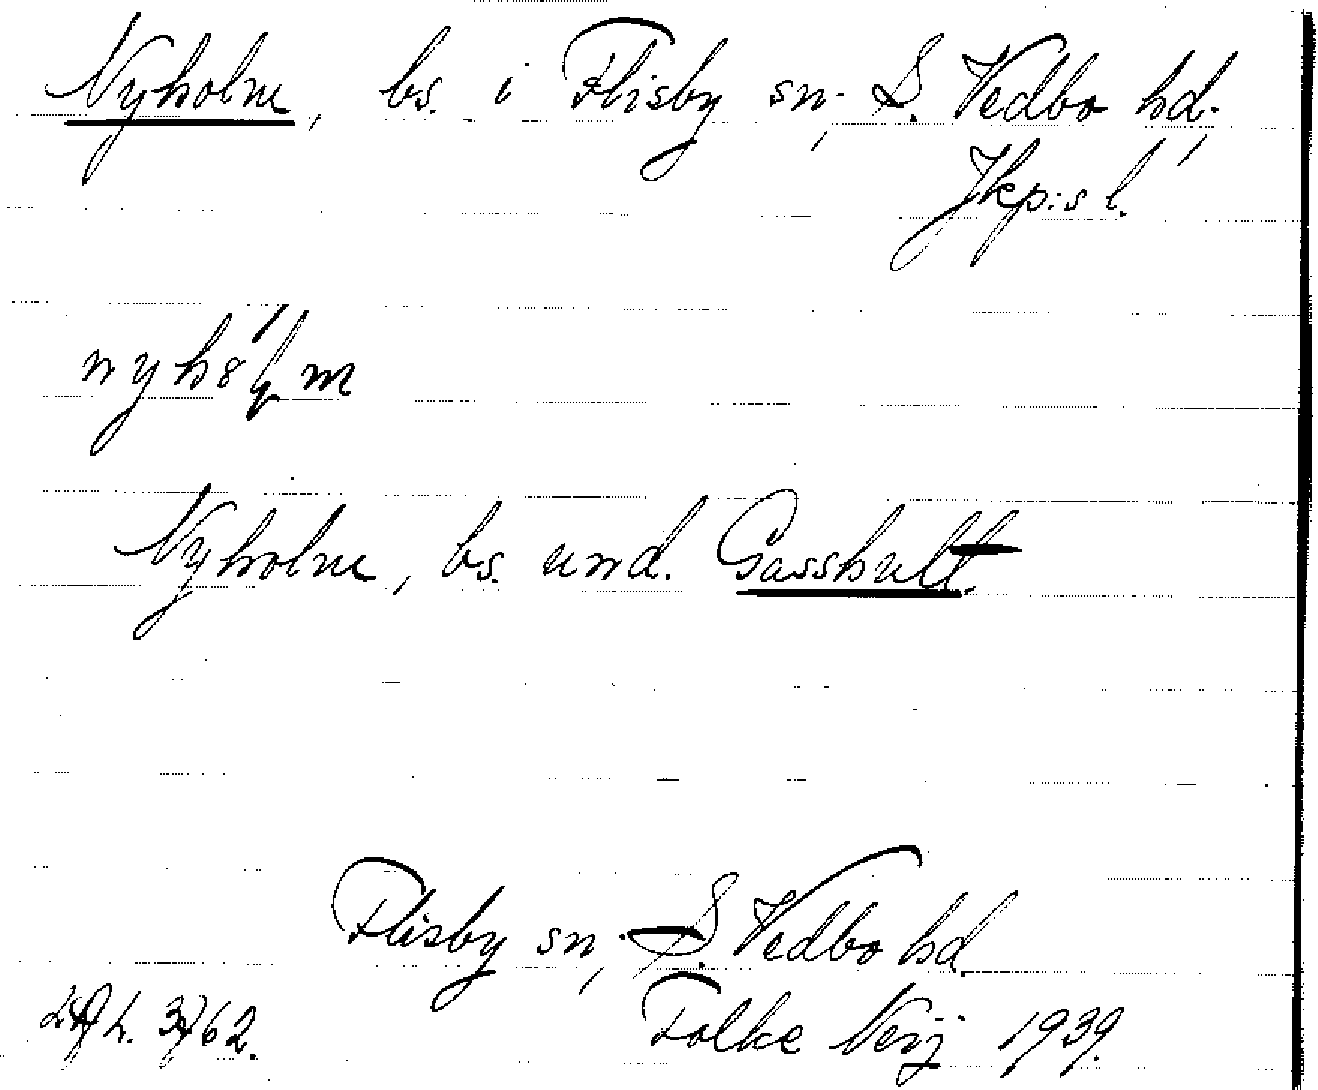 Nyholm, bs. i Flisby sn., S. Vedbo hd.,
Jkp:s l.
Nyholm, bs. und. Gasshult.
Flisby sn, S. Vedbo hd.
Folke Neij 1939.